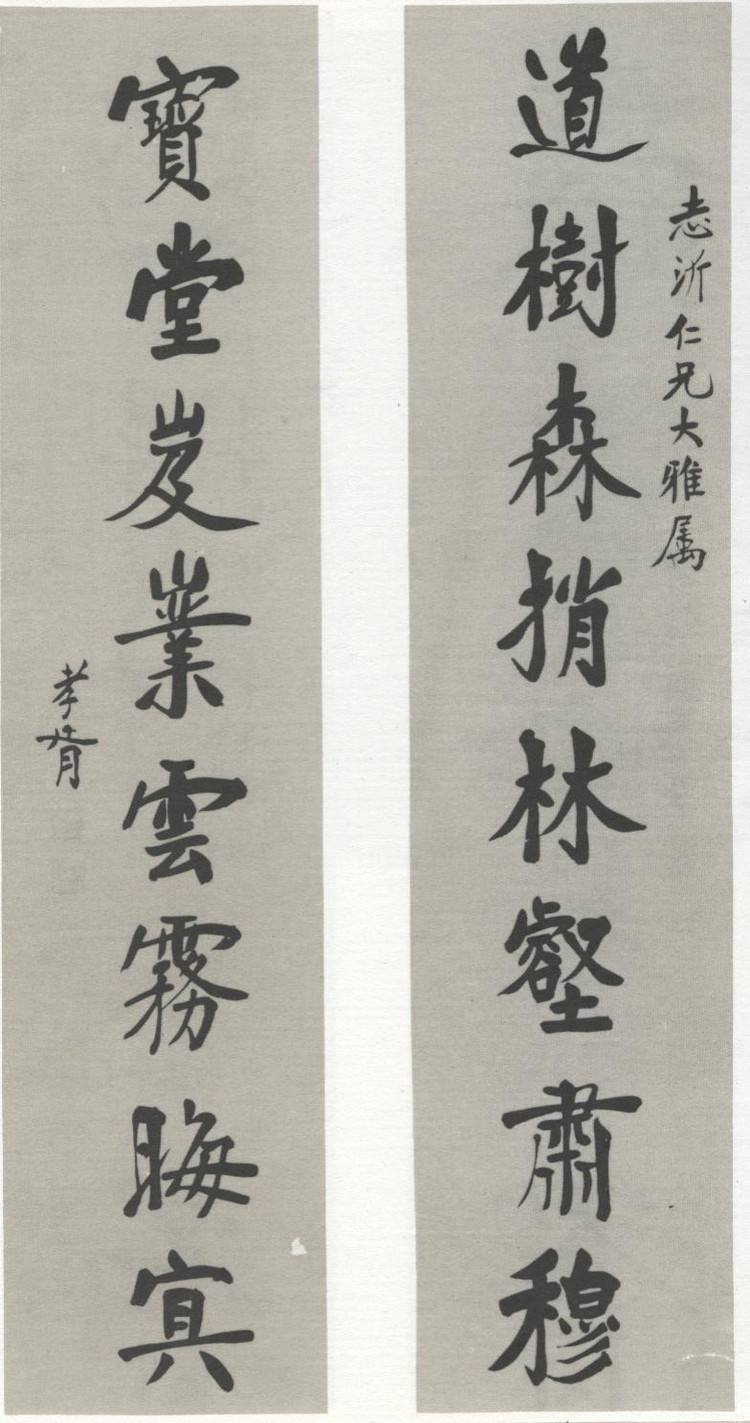 志沂仁兄大雅属
道樹森捎林壑肅穆
寶堂岌嶪雲霧晦冥
孝胥